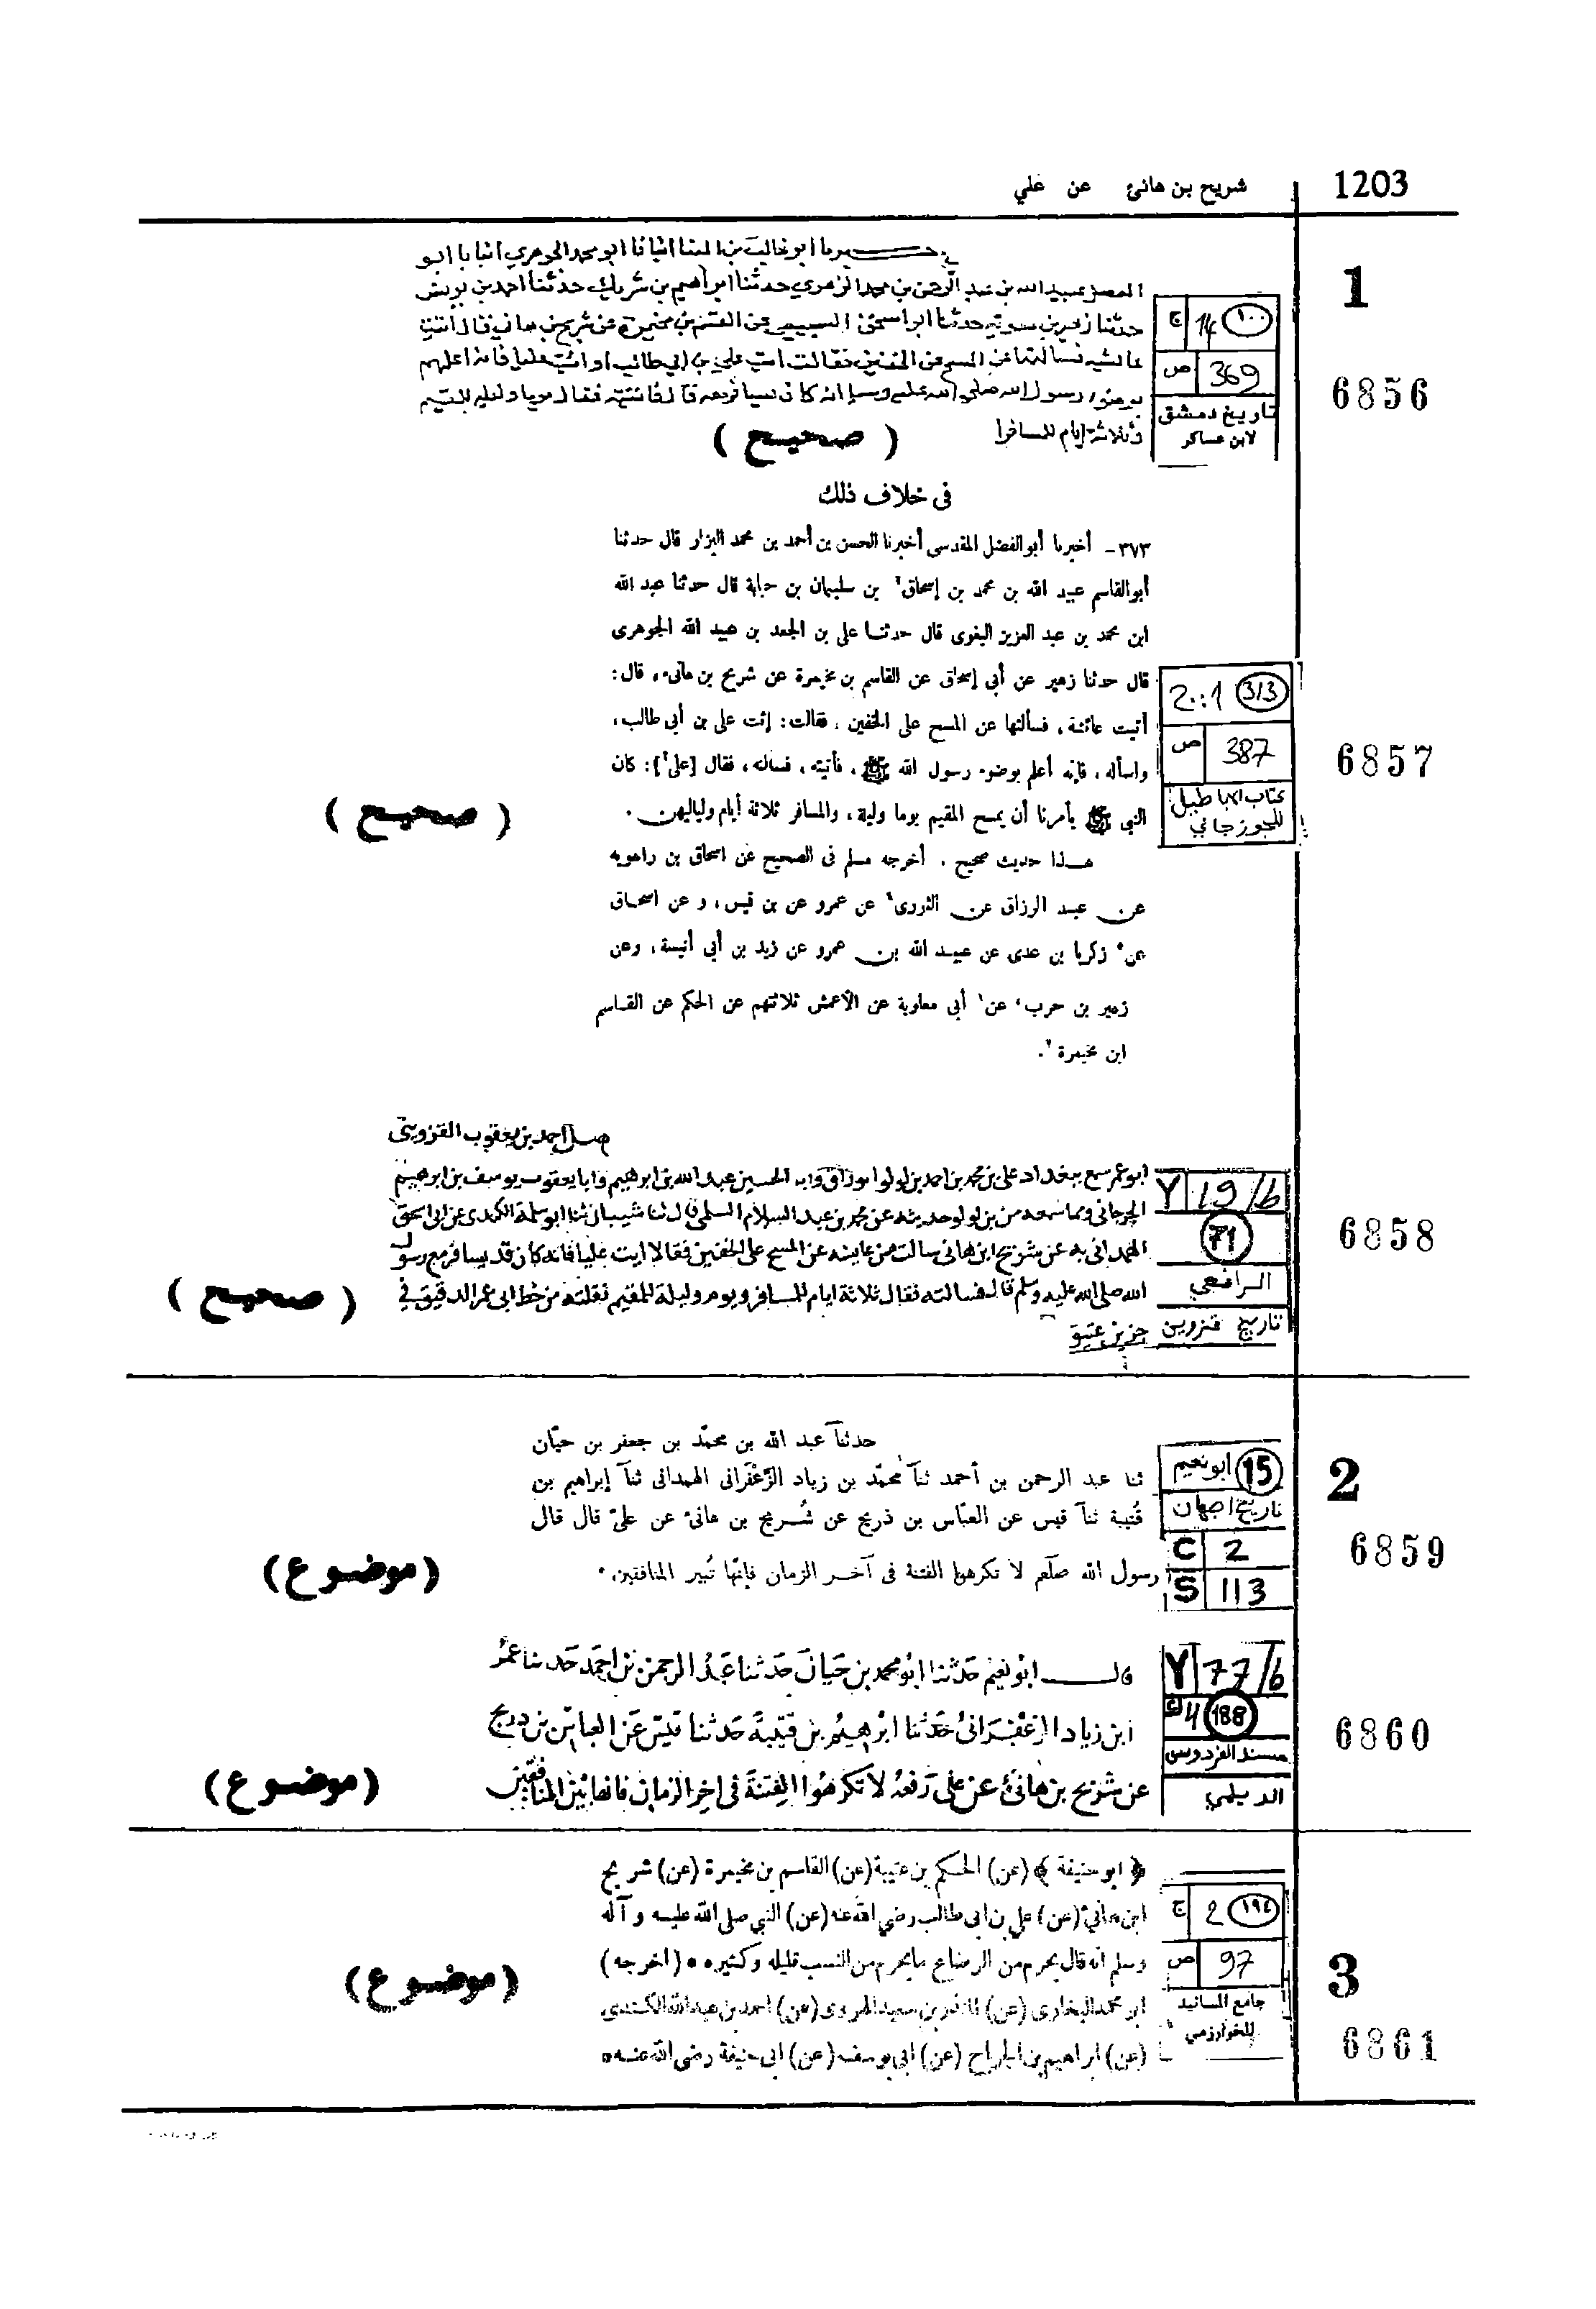 شريح بن هانئ عن علي
1203
1
ابو غالب بن البنا انبانا ابو محمد الجوهري انبانا ابو
الفضل عبيد الله بن عبد الرحمن بن محمد الزهري حدثنا ابراهيم بن شريك حدثنا احمد بن يونس
حدثنا زهير بن معوية حدثنا ابو اسحق السبيعي عن القسم بن مخيمرة عن شريح بن هاني قال اتيت
عائشة فسالتها عن المسح على الخفين فقالت ايت علي بن ابي طالب
بوضوء رسول الله صلى الله عليه وسلم انه كان يسافر معه قال فاتيته فقال يوما وليلة للمقيم
وثلاثة ايام للمسافر
( صحيح )
ج 14 ١٠٠
ص 369
تاريخ دمشق
لابن عساكر
6856
فى خلاف ذلك
٣٧٣ – أخبرنا أبوالفضل المقدسى أخبرنا الحسن بن أحمد بن محمد البزار قال حدثنا
أبوالقاسم عبيد الله بن محمد بن إسحاق بن سليمان بن حبابة قال حدثنا عبد الله
ابن محمد بن عبد العزيز البغوى قال حدثنا على بن الجعد بن عبيد الله الجوهرى
قال حدثنا زهير عن أبى إسحاق عن القاسم بن مخيمرة عن شريح بن هانىء، قال:
أتيت عائشة، فسألتها عن المسح على الخفين، فقالت: إئت على بن أبى طالب،
واسأله، فإنه أعلم بوضوء رسول الله ﷺ، فأتيته، فسألته، فقال [على]: كان
النبى ﷺ يأمرنا أن يمسح المقيم يوما وليلة، والمسافر ثلاثة أيام ولياليهن.
هذا حديث صحيح، أخرجه مسلم فى الصحيح عن اسحاق بن راهويه
عن عبد الرزاق عن الثورى عن عمرو عن بن قيس، و عن اسحاق
عن زكريا بن عدى عن عبيد الله بن عمرو عن زيد بن أبى أنيسة، وعن
زهير بن حرب، عن أبى معاوية عن الأعمش ثلاثتهم عن الحكم عن القاسم
ابن مخيمرة.
( صحيح )
313
ص 387
كتاب الاباطيل
للجوزجاني
6857
احمد بن يعقوب القزويني
ابو عمر سمع ببغداد علي بن محمد بن احمد بن لولوا موراق وابا الحسين عبد الله بن ابرهيم وابا يعقوب يوسف بن ابرهيم
الجرجاني ومما سمعه من بن لولو حديثه عن محمد بن عبد السلام السلمي قال ثنا شيبان ثنا ابو سلمة الكندى عن ابي اسحق
الهمداني به عن شريح ابن هانى سالت عايشة عن المسح على الخفين فقالا ايت عليا فانه كان قد يسافر مع رسول
الله صلى الله عليه وسلم قال فسالته فقال ثلاثة ايام للمسافر ويوم وليلة للمقيم نقلته من خط ابى عمر الدقيق في
جزين عتيق
( صحيح )
Y 19/b
71
الرافعي
تاريخ قزوين
6858
2
حدثنآ عبد الله بن محمّد بن جعفر بن حيّان
ثنا عبد الرحمن بن أحمد ثنآ محمّد بن زياد الزّعْفَرانى الهمدانى ثنآ إبراهيم بن
قُتيبة ثنآ قيس عن العبّاس بن ذريح عن شُريح بن هانئ عن علىّ قال قال
رسول الله صلّعم لا تكرهوا الفتنة فى آخر الزمان فإنّها تُبير المنافقين.
(موضوع)
15 ابونعيم
تاريخ اصبهان
C 2
S 113
6859
قال ابو نعيم حدثنا ابو محمد بن حيان حدثنا عبد الرحمن بن احمد حدثنا عمر
ابن زياد الزعفراني حدثنا ابرهيم بن قتيبة حدثنا قيس عن العباس بن ذريح
عن شريح بن هانئ عن علي رفعه لا تكرهوا الفتنة فى اخر الزمان فانها تبين المنافقين
(موضوع)
Y 77/b
188
مسند الفردوس
الديلمي
6860
3
﴿ ابو حنيفة ﴾ (عن) الحكم بن عتيبة (عن) القاسم بن مخيمرة (عن) شريح
ابن هانئ (عن) علي بن ابي طالب رضي الله عنه (عن) النبي صلى الله عليه و آله
وسلم انه قال يحرم من الرضاع ما يحرم من النسب قليله وكثيره • (اخرجه)
ابو محمد البخارى (عن) المنذر بن سعيد الهروى (عن) احمد بن عبد الله الكندى
(عن) ابراهيم بن الجراح (عن) ابى يوسف (عن) ابى حنيفة رضى الله عنه•
(موضوع)
ج 2 ١٩٤
ص 97
جامع المسانيد
للخوارزمي
6861